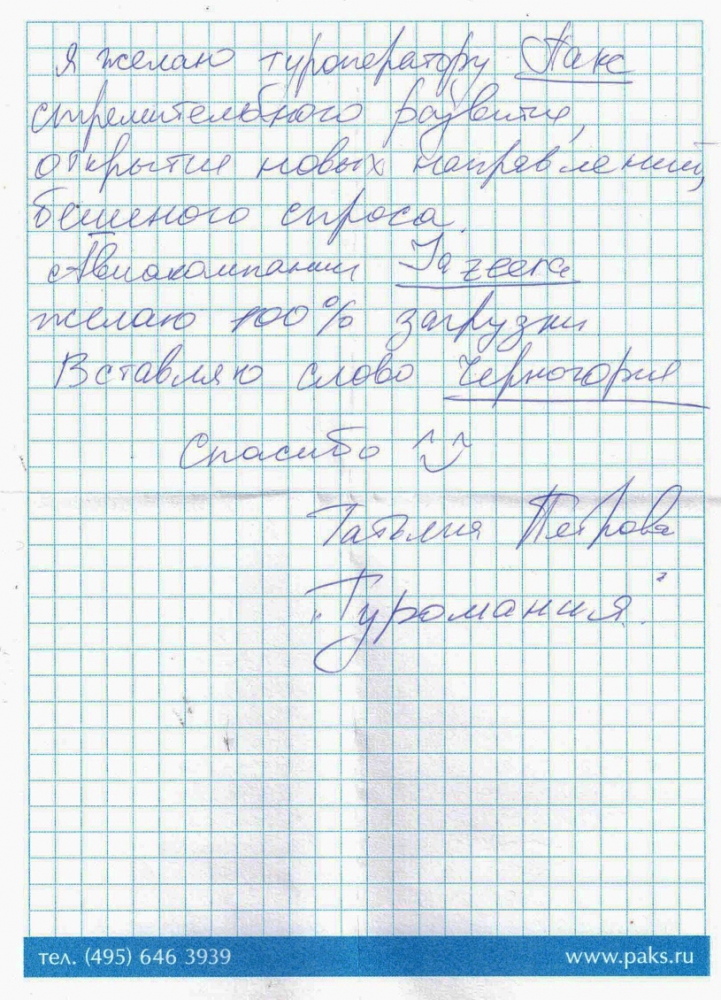 Я желаю туроператору Пакс
стремительного развития,
открытие новых направлений,
бешеного спроса.
Авиакомпании Jazeera
желаю 100% загрузки
Вставляю слово Черногория
Спасибо
Татьяна Петрова
"Туромания".
тел. (495) 646 3939
www.paks.ru